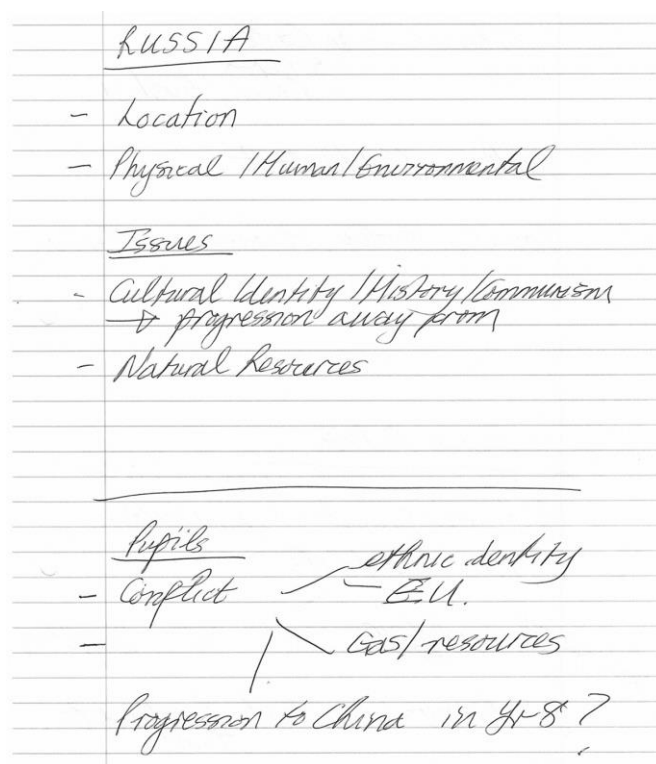 RUSSIA
- Location
- Physical / Human / Environmental
Issues
- Cultural Identity / History / Communism
→ progression away from
- Natural Resources
Pupils
ethnic identity
- Conflict - E.U.
-
Gas / resources
Progression to China in Yr 8?